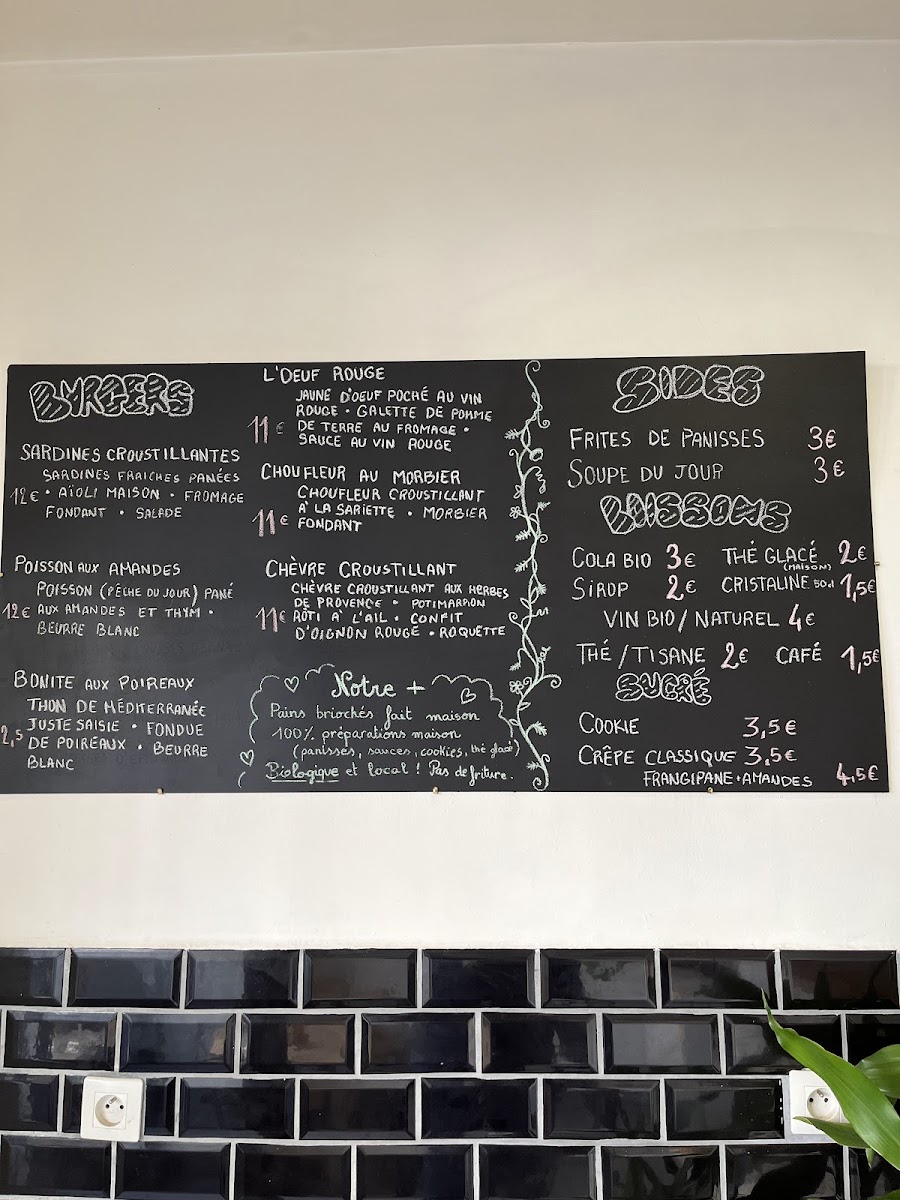 BURGERS
SARDINES CROUSTILLANTES
SARDINES FRAICHES PANÉES
12€ • AÏOLI MAISON • FROMAGE
FONDANT • SALADE
POISSON AUX AMANDES
POISSON (PÊCHE DU JOUR) PANÉ
12€ AUX AMANDES ET THYM •
BEURRE BLANC
BONITE AUX POIREAUX
THON DE MÉDITERRANÉE
2,5 JUSTE SAISIE • FONDUE
DE POIREAUX • BEURRE
BLANC
L'OEUF ROUGE
JAUNE D'OEUF POCHÉ AU VIN
ROUGE • GALETTE DE POMME
11€ DE TERRE AU FROMAGE •
SAUCE AU VIN ROUGE
CHOUFLEUR AU MORBIER
CHOUFLEUR CROUSTILLANT
À LA SARIETTE • MORBIER
11€ FONDANT
CHÈVRE CROUSTILLANT
CHÈVRE CROUSTILLANT AUX HERBES
DE PROVENCE • POTIMARRON
11€ RÔTI À L'AIL • CONFIT
D'OIGNON ROUGE • ROQUETTE
Notre +
Pains briochés fait maison
100% préparations maison
(panisses, sauces, cookies, thé glacé)
Biologique et local ! Pas de friture.
SIDES
FRITES DE PANISSES 3€
SOUPE DU JOUR 3€
BUISSONS
COLA BIO 3€ THÉ GLACÉ 2€
(MAISON)
SIROP 2€ CRISTALINE 50cl 1,5€
VIN BIO / NATUREL 4€
THÉ / TISANE 2€ CAFÉ 1,5€
SUCRÉ
COOKIE 3,5€
CRÊPE CLASSIQUE 3,5€
FRANGIPANE • AMANDES 4,5€